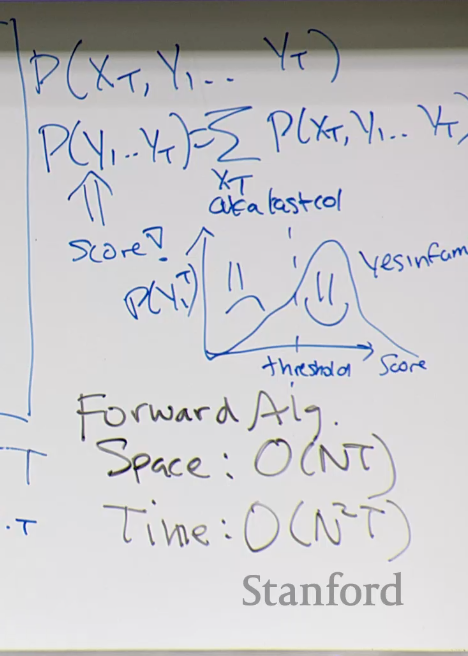 P(X_T, Y_1 ... Y_T)
P(Y_1..Y_T)=∑ P(X_T, Y_1... Y_T)
X_T
aka last col
Score!
P(Y_1^T)
yes in fam
threshold Score
Forward Alg.
Space: O(NT)
T
Time: O(N²T)
.T
Stanford